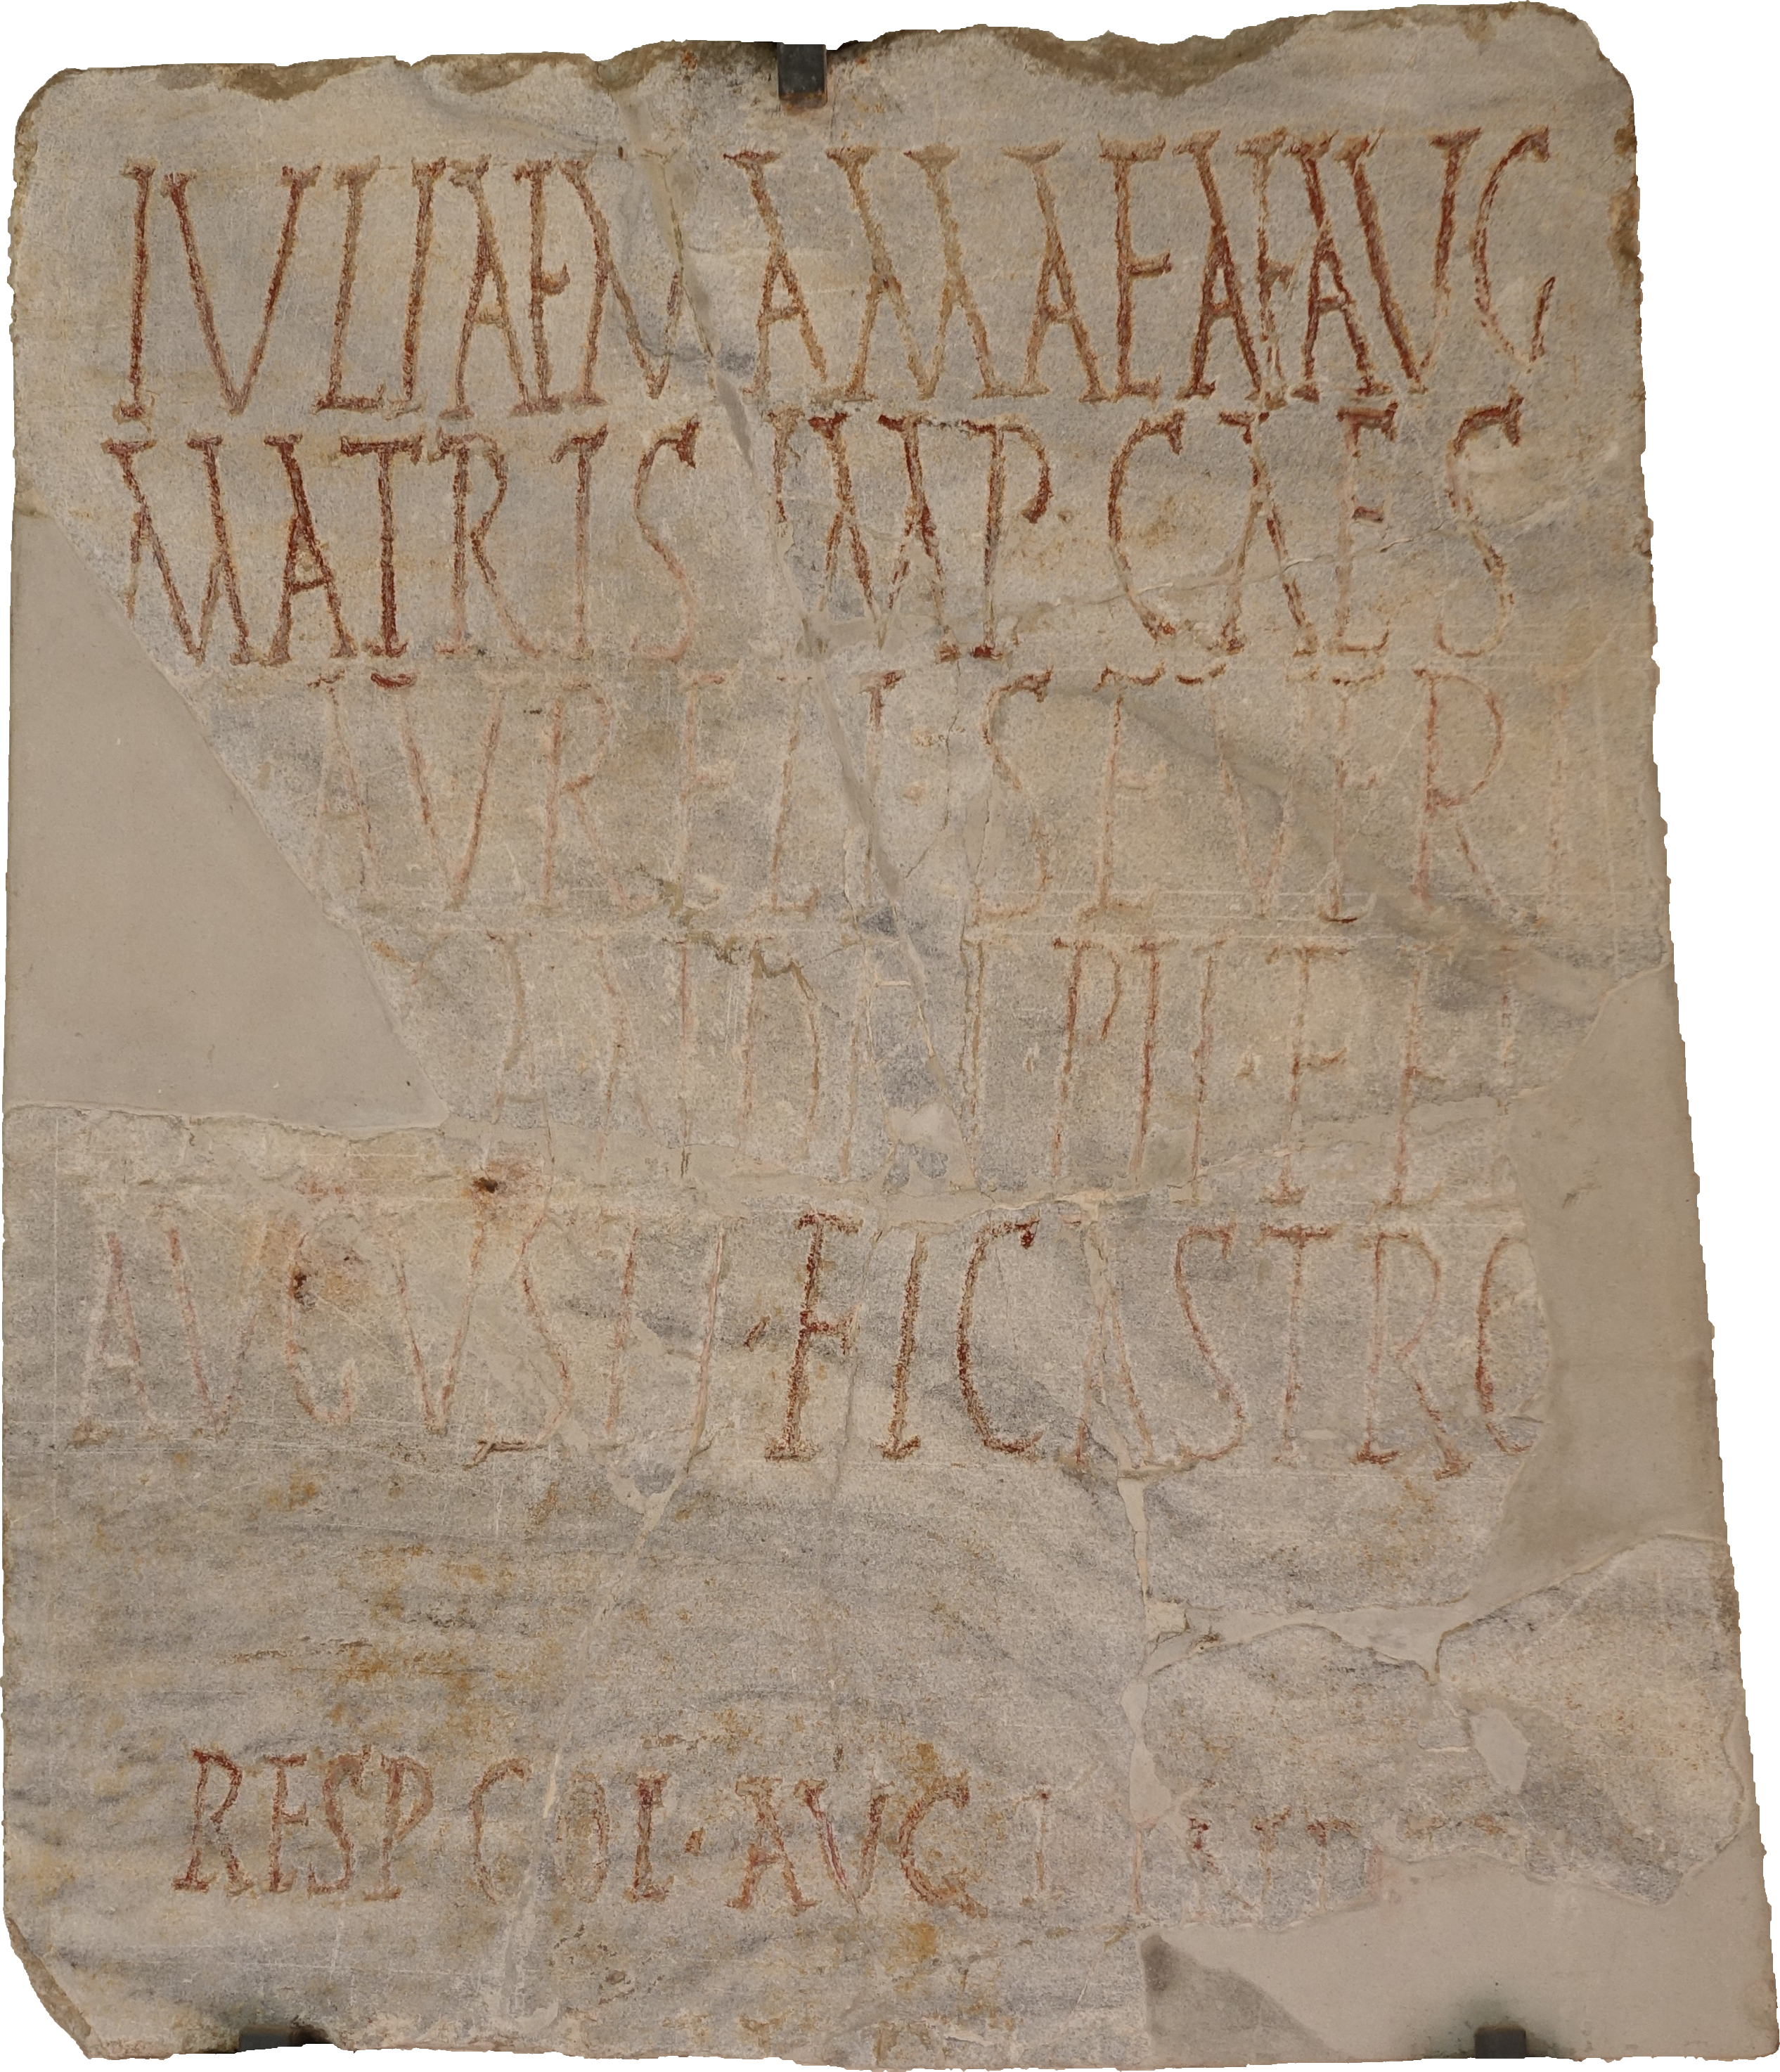 IVLIAE MAMAEAE AVG
MATRIS IMP · CAES
AVRELI · SEVERI
PII · FELI
AVGVSTI · ET CASTRO
RESP COL · AVG